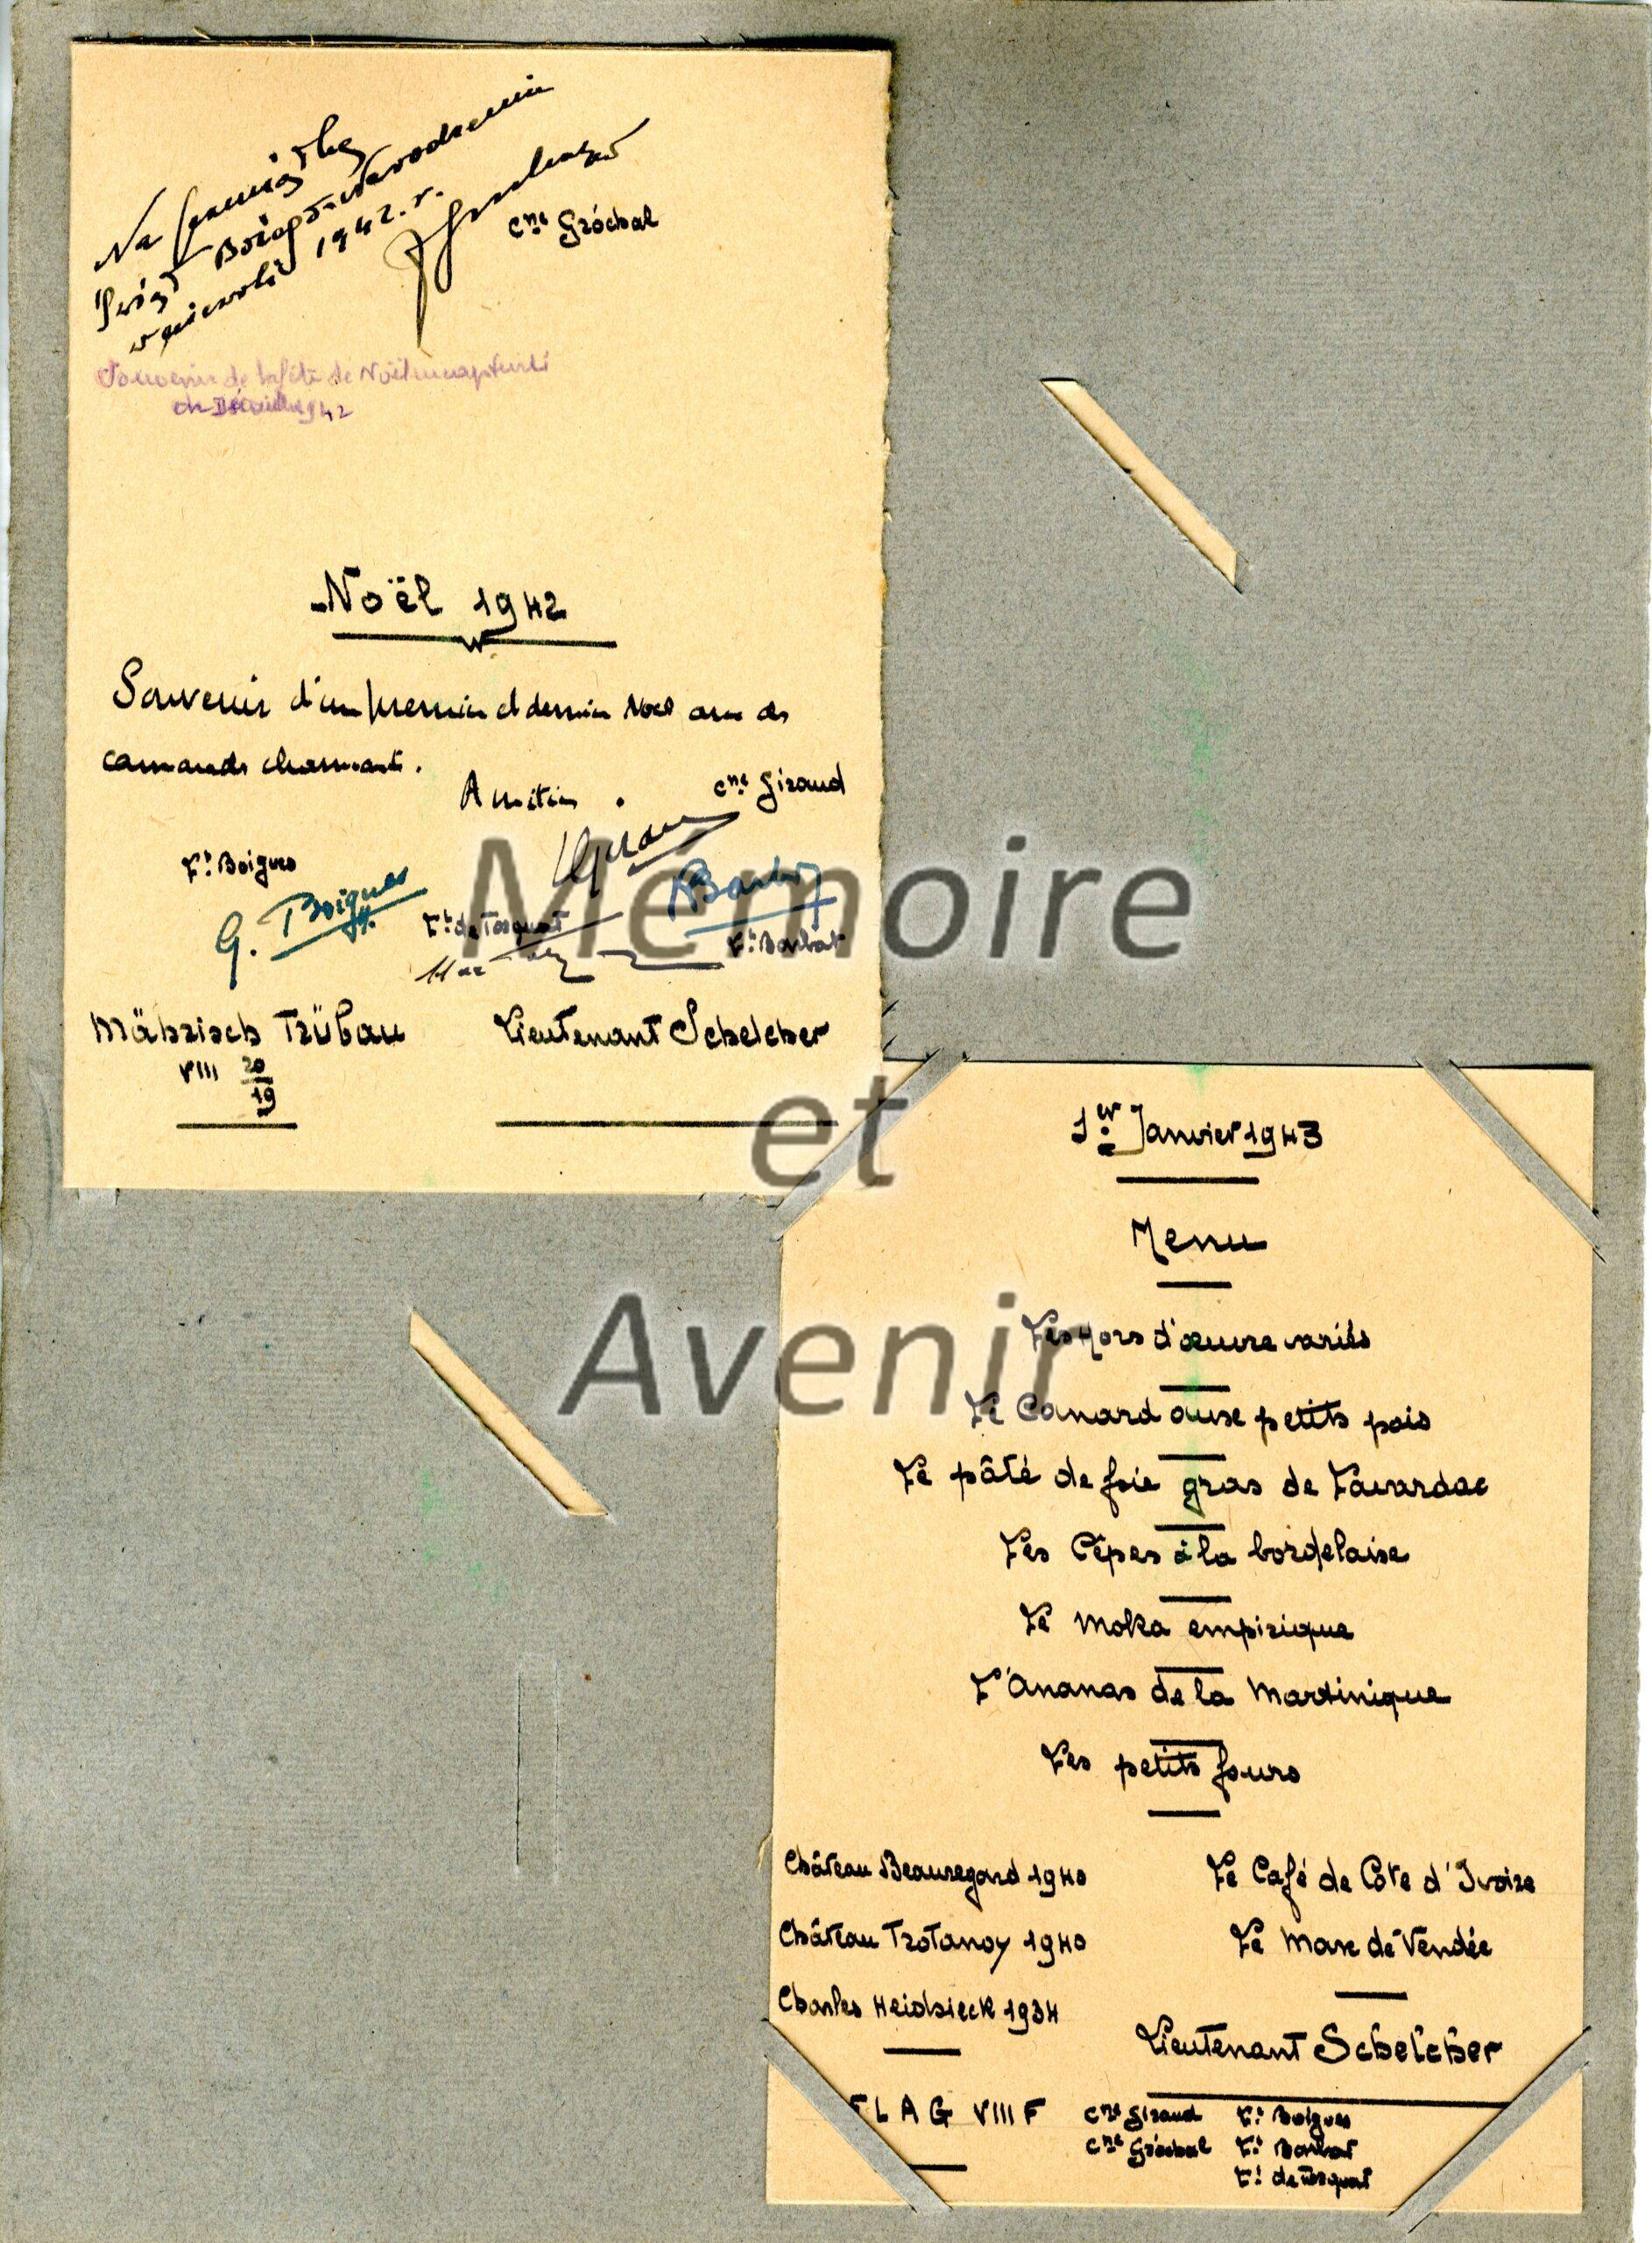 Na pamiątkę
Świąt Bożego Narodzenia
w niewoli 1942. r.
Cne Gróchal
Souvenir de la fête de Noël en captivité
de Décembre 1942
Noël 1942
Souvenir d'un premier et dernier Noël avec des
camarades charmants.
Amitiés.
Cne Giraud
Lt Boigues
G. Boigues
Barbat
Lt de Tosquat
Lt Barbat
Mährisch Trübau
VIII 20
19
Lieutenant Schelcher
Mémoire
et
Avenir
1er Janvier 1943
Menu
Les Hors d'œuvre variés
Le Canard aux petits pois
Le pâté de foie gras de Lavardac
Les Cèpes à la bordelaise
Le Moka empirique
L'Ananas de la Martinique
Les petits fours
Château Beauregard 1940
Château Trotanoy 1940
Charles Heidsieck 1934
Le Café de Côte d'Ivoire
Le Marc de Vendée
Lieutenant Schelcher
FLAG VIII F
Cne Giraud
Cne Gróchal
Lt Boigues
Lt Barbat
Lt de Tosquat